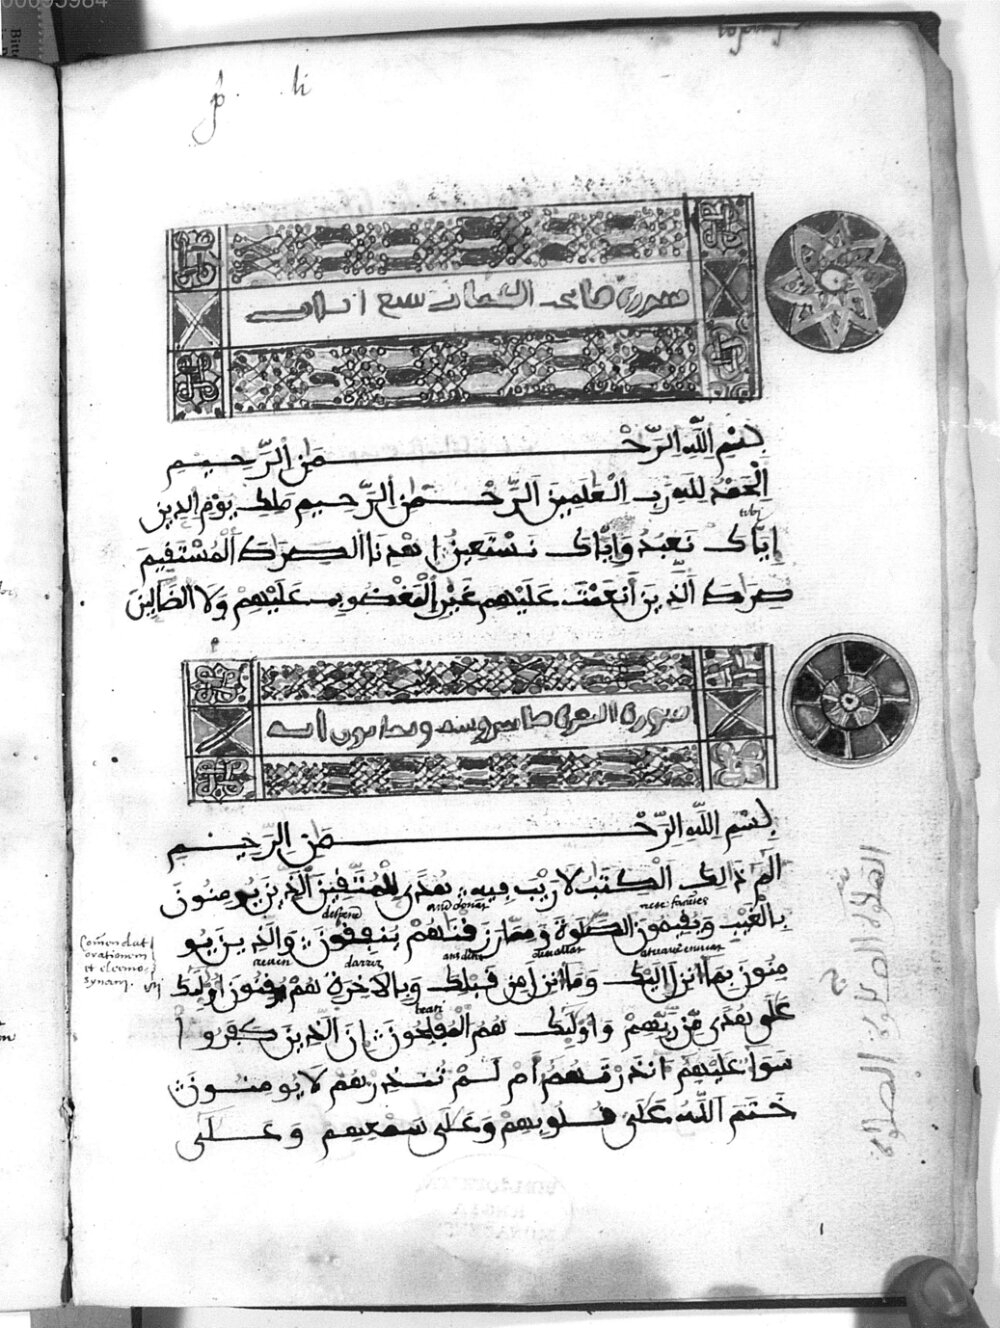 p. li
سورة فاتحة الكتاب سبع ايات
بِسْمِ اللَّهِ الرَّحْمَٰنِ الرَّحِيمِ
الْحَمْدُ لِلَّهِ رَبِّ الْعَٰلَمِينَ الرَّحْمَٰنِ الرَّحِيمِ مَلِكِ يَوْمِ الدِّينِ
إِيَّاكَ نَعْبُدُ وَإِيَّاكَ نَسْتَعِينُ اهْدِنَا الصِّرَاطَ الْمُسْتَقِيمَ
صِرَاطَ الَّذِينَ أَنْعَمْتَ عَلَيْهِمْ غَيْرِ الْمَغْضُوبِ عَلَيْهِمْ وَلَا الضَّالِّينَ
سورة البقرة مايتين وستة وثمانون اية
بِسْمِ اللَّهِ الرَّحْمَٰنِ الرَّحِيمِ
الم ذَالِكَ الْكِتَٰبُ لَا رَيْبَ فِيهِ هُدًى لِلْمُتَّقِينَ الَّذِينَ يُومِنُونَ
بِالْغَيْبِ وَيُقِيمُونَ الصَّلَوٰةَ وَمِمَّا رَزَقْنَٰهُمْ يُنْفِقُونَ وَالَّذِينَ يُو
مِنُونَ بِمَا أُنْزِلَ إِلَيْكَ وَمَا أُنْزِلَ مِنْ قَبْلِكَ وَبِالْآخِرَةِ هُمْ يُوقِنُونَ أُوْلَٰئِكَ
عَلَى هُدًى مِّن رَّبِّهِمْ وَأُوْلَٰئِكَ هُمُ الْمُفْلِحُونَ إِنَّ الَّذِينَ كَفَرُوا
سَوَآءٌ عَلَيْهِمْ أَنْذَرْتَهُمْ أَمْ لَمْ تُنْذِرْهُمْ لَا يُومِنُونَ
خَتَمَ اللَّهُ عَلَى قُلُوبِهِمْ وَعَلَى سَمْعِهِمْ وَعَلَى
Cōmendat
orationem
et eleemo-
synam.